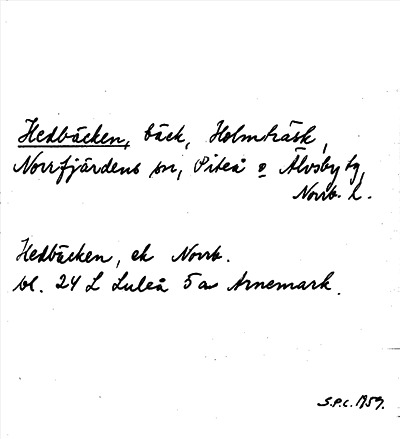 Hedbäcken, bäck, Holmträsk,
Norrfjärdens sn, Piteå o Älvsby tg,
Norrb. l.
Hedbäcken, ek Norrb.
bl. 24 L Luleå 5a Arnemark.
S.P.C. 1959.